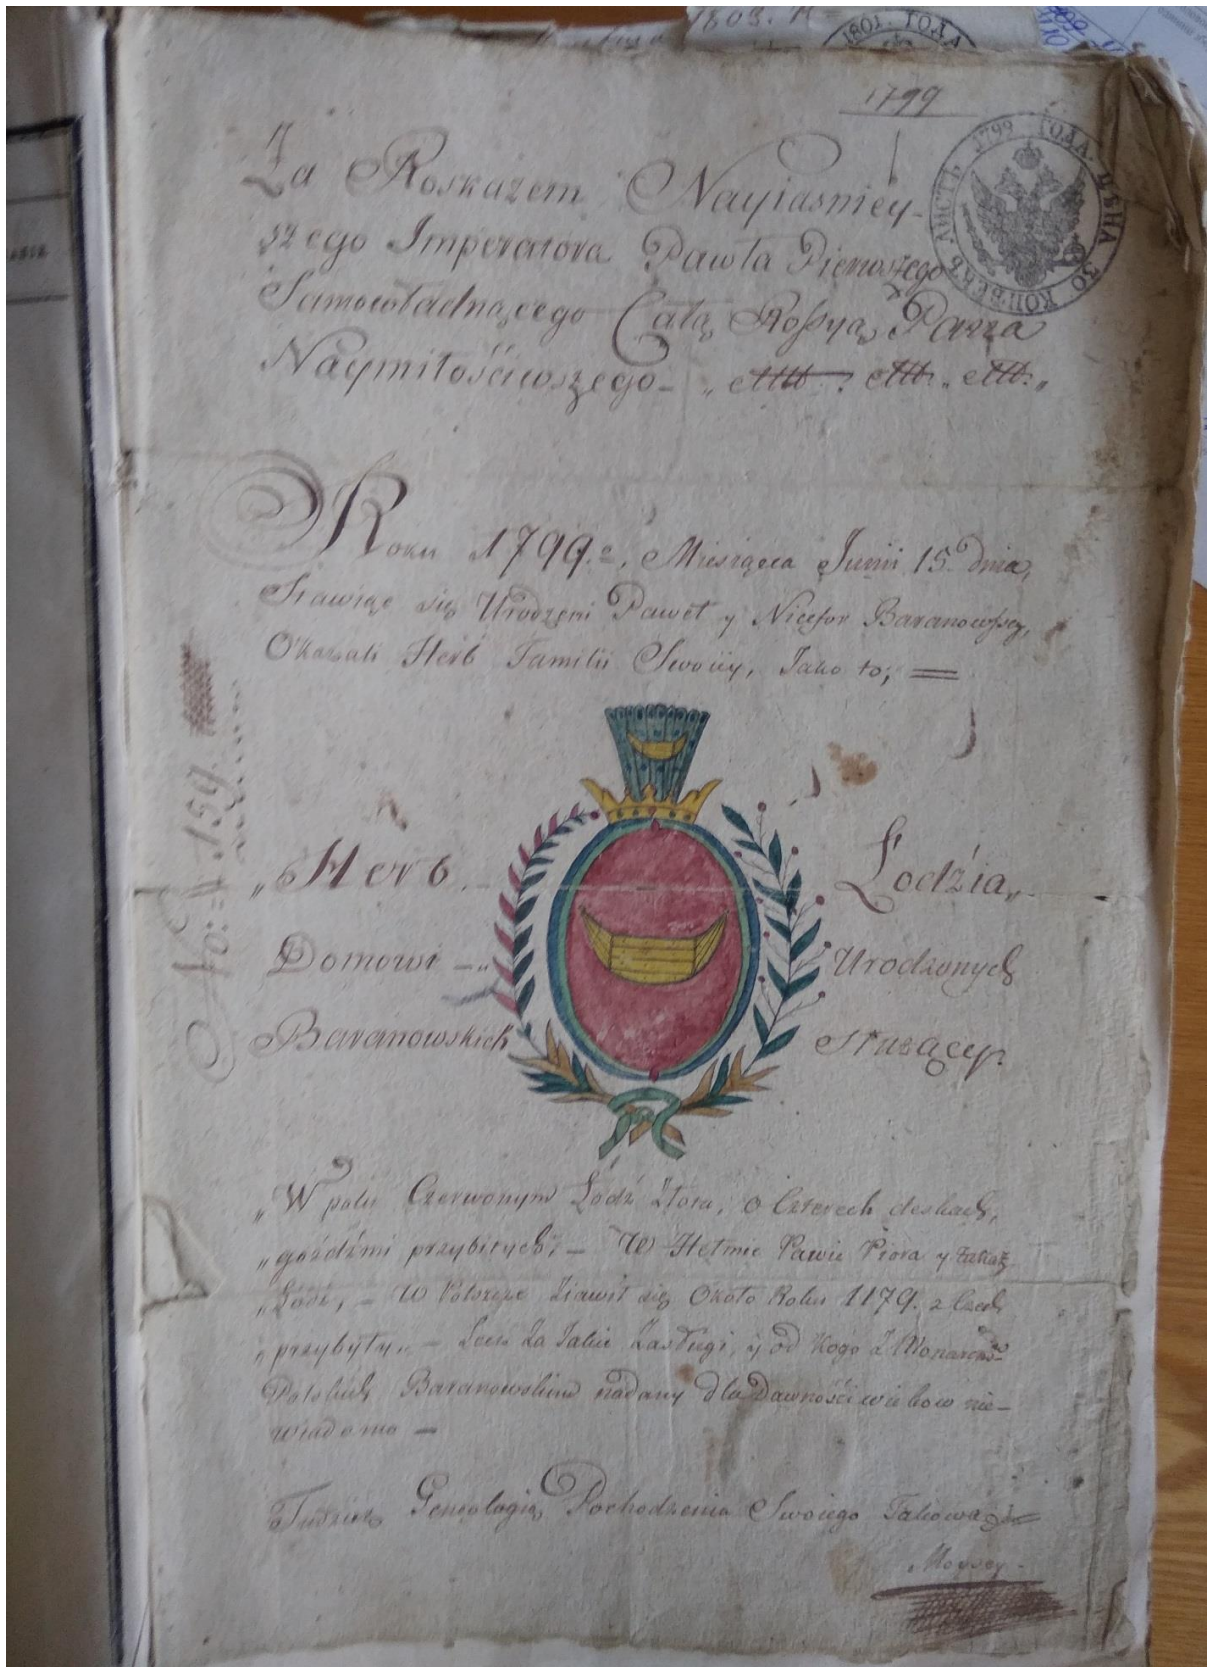 1809.
1801. ГОДА
1799
ЛИСТЪ 1799 ГОДА. ЦѢНА 30 КОПѢЕКЪ
Za Roskazem Nayiasniey-
szego Imperatora Pawła Pierwszego
Samowładnącego Całą Rossyą Pana
Naymiłościwszego
Roku 1799.º, Miesiąca Junii 15. dnia,
Stawiąc się Urodzeni Paweł y Nicefor Baranowscy,
Okazali Herb Familii Swoiiy, Jako to; =
No: 159
„Herb. – Łodzia„
Domowi – „ Urodzonych
Baranowskich Służący.
„W polu Czerwonym Łódź Złota, o Czterech deskach,
„goździmi przybitych; – W Hełmie Pawie Piora y takaż
„Łódź, – W Polszcze Ziawił się Około Roku 1179. z Czech
„przybyły„ – Lecz Za Jakie Zasługi, y od Kogo Z Monarchow
Polskich Baranowskim nadany dla Dawności wiekow nie-
wiadomo –
Tudzież Genealogią Pochodzenia Swoiego Takową =
Moysey -